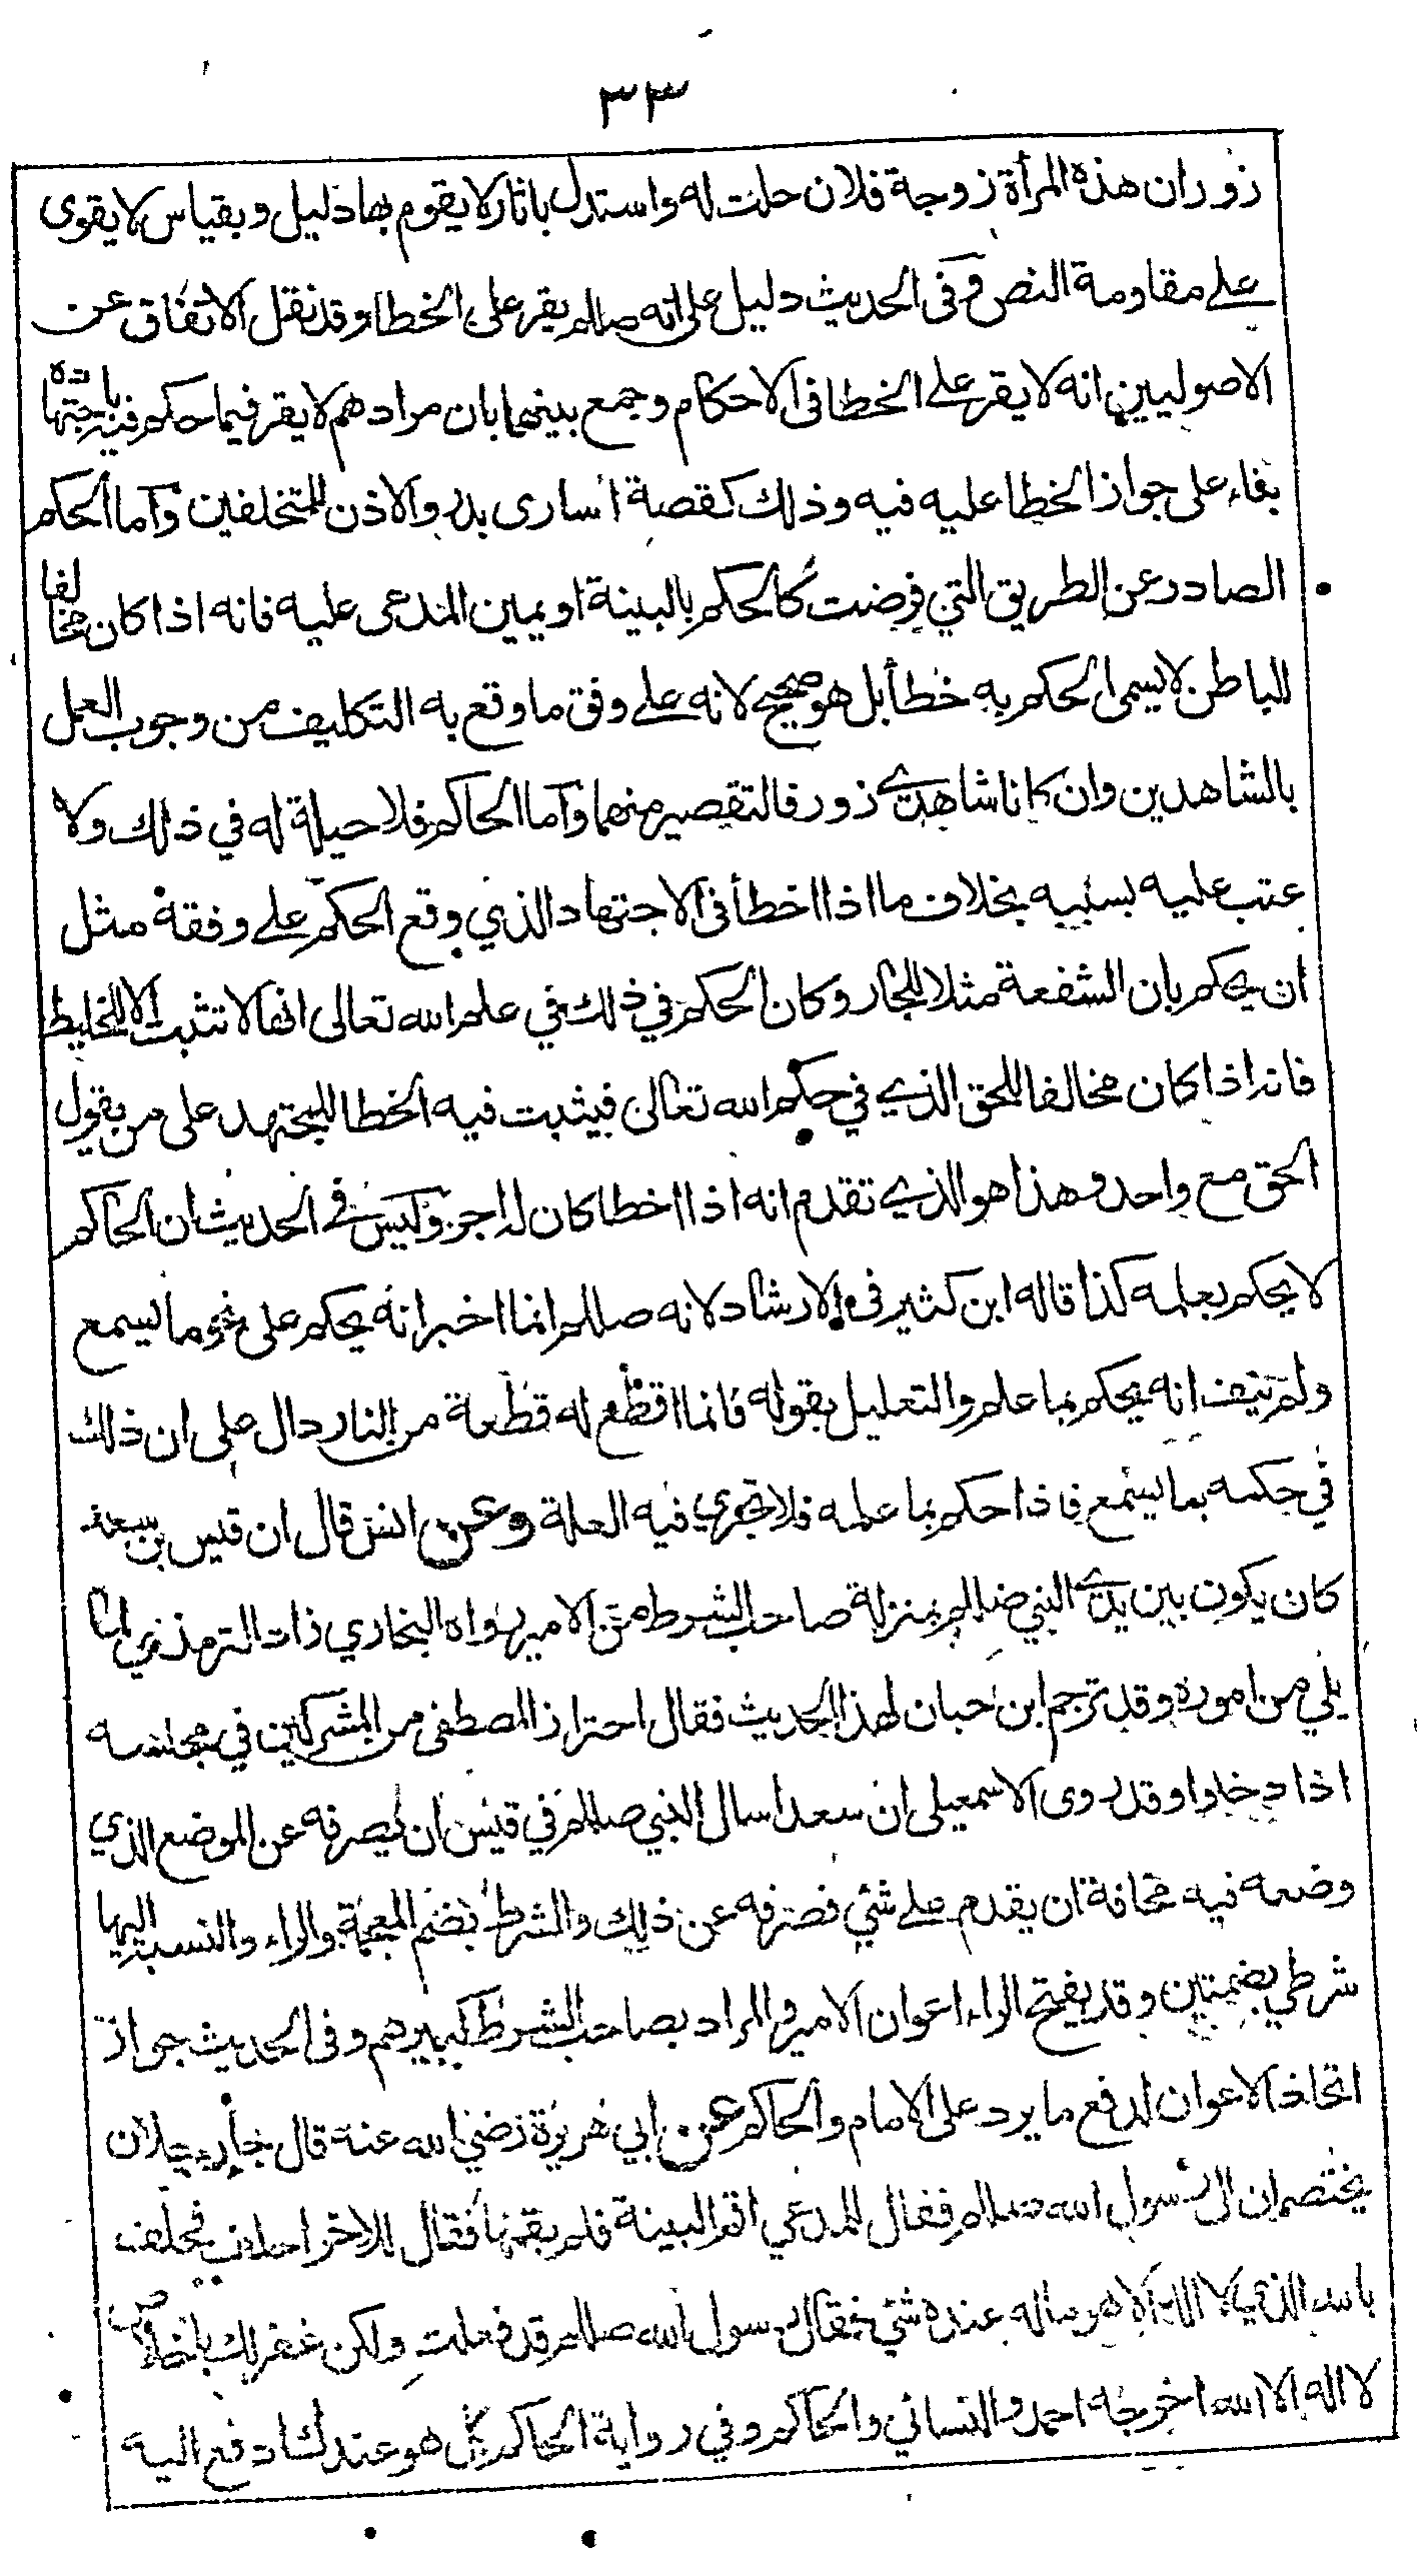 ٣٣
زوران هذه المرأة زوجة فلان حلت له واستدل باثار لا يقوم بها دليل وبقياس لا يقوى
على مقاومة النص وفى الحديث دليل على انه صللم يقر على الخطا وقد نقل الاتفاق عن
الاصوليين انه لا يقر على الخطا فى الاحكام وجمع بينهما بان مرادهم لا يقر فيما حكم فيه باجتهاده
بقاء على جواز الخطا عليه فيه وذلك كقصة اسارى بدر والاذن للمتخلفين واما الحكم
الصادر عن الطريق التي فرضت كالحكم بالبينة او يمين المدعى عليه فانه اذا كان مخالفا
للباطن لا يسمى الحكم به خطأ بل هو صحيح لانه على وفق ما وقع به التكليف من وجوب العمل
بالشاهدين وان كانا شاهدي زور فالتقصير منهما واما الحاكم فلا حيلة له في ذلك ولا
عتب عليه بسببه بخلاف ما اذا اخطأ فى الاجتهاد الذي وقع الحكم على وفقه مثل
ان يحكم بان الشفعة مثلا للجار وكان الحكم في ذلك في علم الله تعالى انها لا تثبت الا للخليط
فانه اذا كان مخالفا للحق الذي في حكم الله تعالى فيثبت فيه الخطا للمجتهد على من يقول
الحق مع واحد وهذا هو الذي تقدم انه اذا اخطا كان له اجر وليس في الحديث ان الحاكم
لا يحكم بعلمه كذا قاله ابن كثير فى الارشاد لانه صللم انما اخبر انه يحكم على نحو ما يسمع
ولم ينف انه يحكم بما علم والتعليل بقوله فانما اقطع له قطعة من النار دال على ان ذلك
في حكمه بما يسمع فاذا حكم بما علمه فلا تجري فيه العلة وعن انس قال ان قيس بن سعد
كان يكون بين يدي النبي صللم بمنزلة صاحب الشرط من الامير رواه البخاري زاد الترمذي لما
يلي من اموره وقد ترجم ابن حبان لهذا الحديث فقال احتراز المصطفى من المشركين في مجلسه
اذا دخلوا وقد روى الاسمعيلى ان سعدا سال النبي صللم في قيس ان يصرفه عن الموضع الذي
وضعه فيه مخافة ان يقدم على شئي فصرفه عن ذلك والشرط بضم المعجمة والراء والنسبة اليها
شرطي بضمتين وقد يفتح الراء اعوان الامير والمراد بصاحب الشرط كبيرهم وفى الحديث جواز
اتخاذ الاعوان لدفع ما يرد على الامام والحاكم عن ابي هريرة رضي الله عنه قال جاء رجلان
يختصمان الى رسول الله صللم فقال للمدعي اقم البينة فلم يقمها فقال للاخر احلف فحلف
بالله الذي لا اله الا هو ماله عنده شئي فقال رسول الله صللم قد فعلت ولكن غفر لك باخلاص
لا اله الا الله اخرجه احمد والنسائي والحاكم وفي رواية الحاكم بل هو عندك ادفع اليه